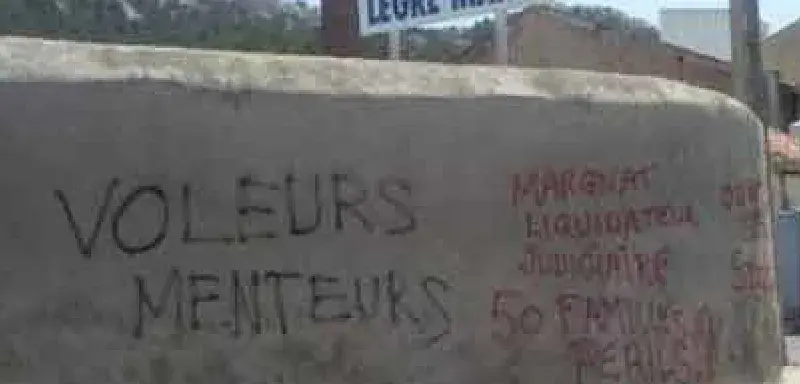 LEGRE
VOLEURS
MENTEURS
MARGNAT
LIQUIDATEUR
JUDICIAIRE
50 FAMILLES
PERILS